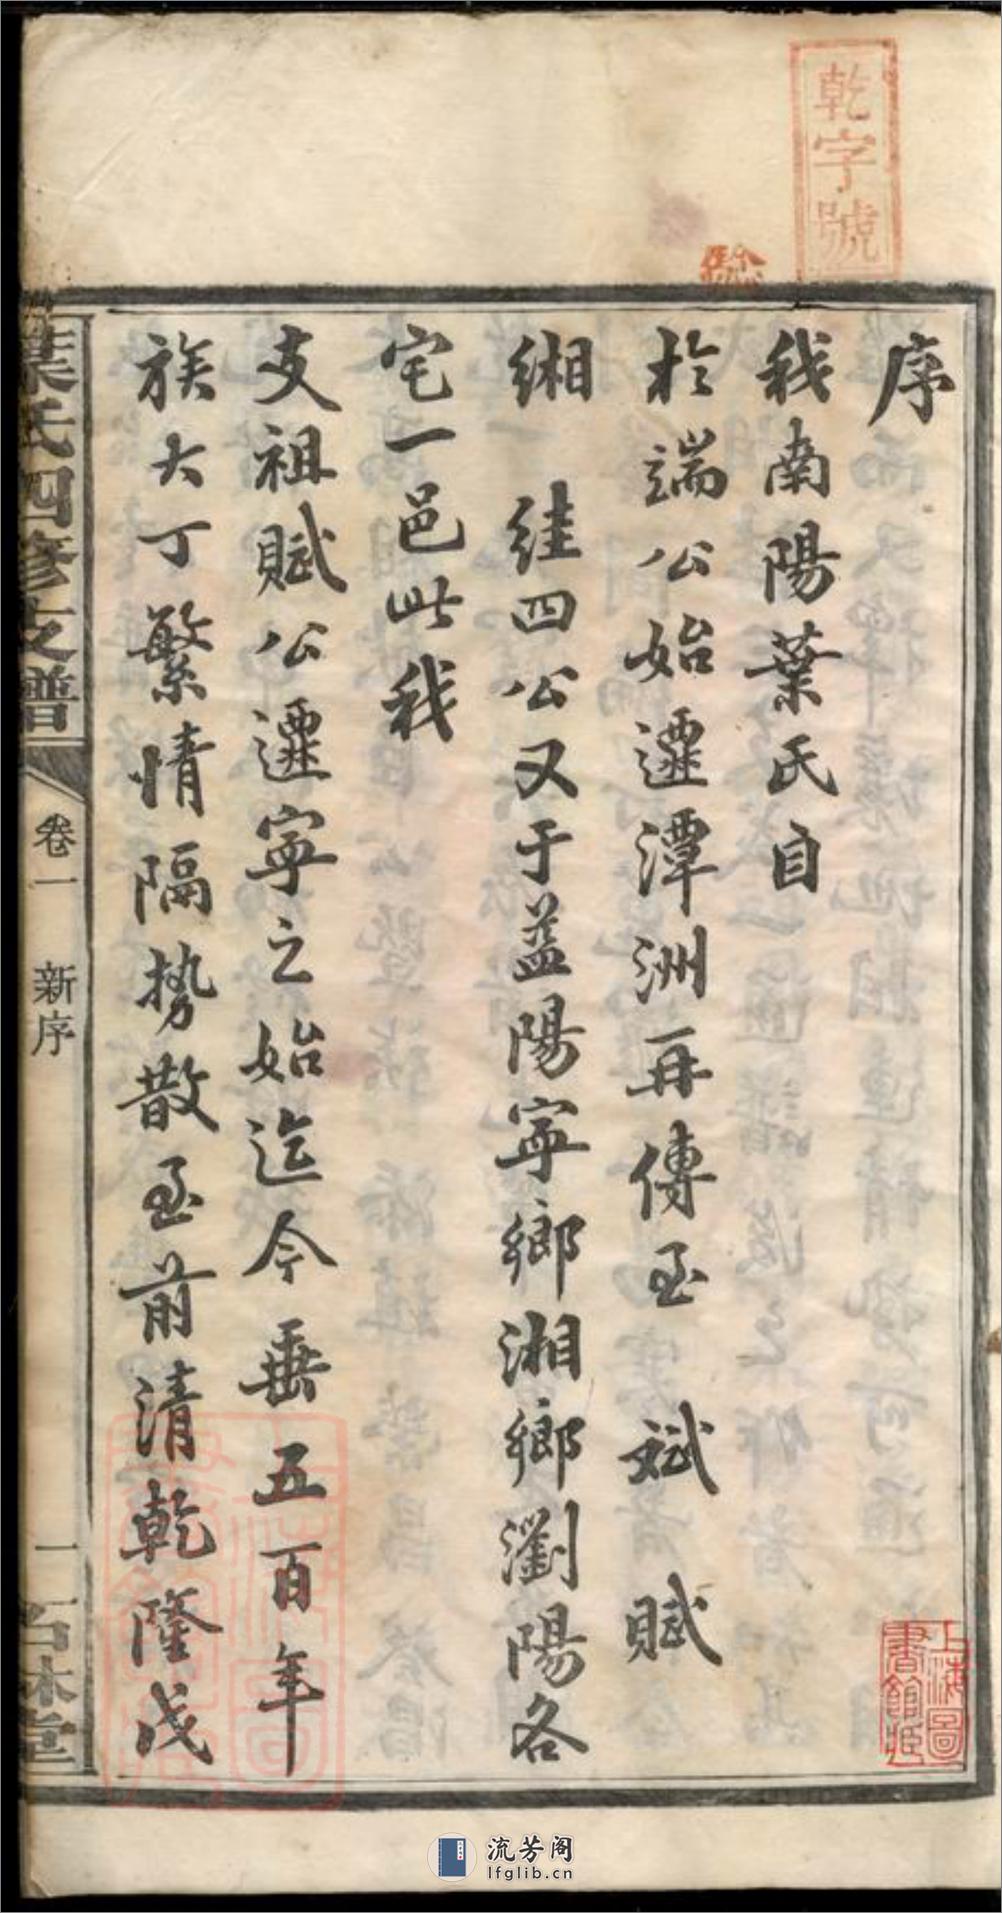 乾字號
序
我南陽葉氏自
於端公始遷潭洲再傳至 斌 賦
緗 絓四公又于益陽寧鄉湘鄉瀏陽各
宅一邑此我
支祖賦公遷寧之始迄今垂五百年
族大丁繁情隔勢散至前清乾隆戊
葉氏四修支譜
卷一 新序
一
石林堂
上海圖書館藏
流芳阁
lfglib.cn